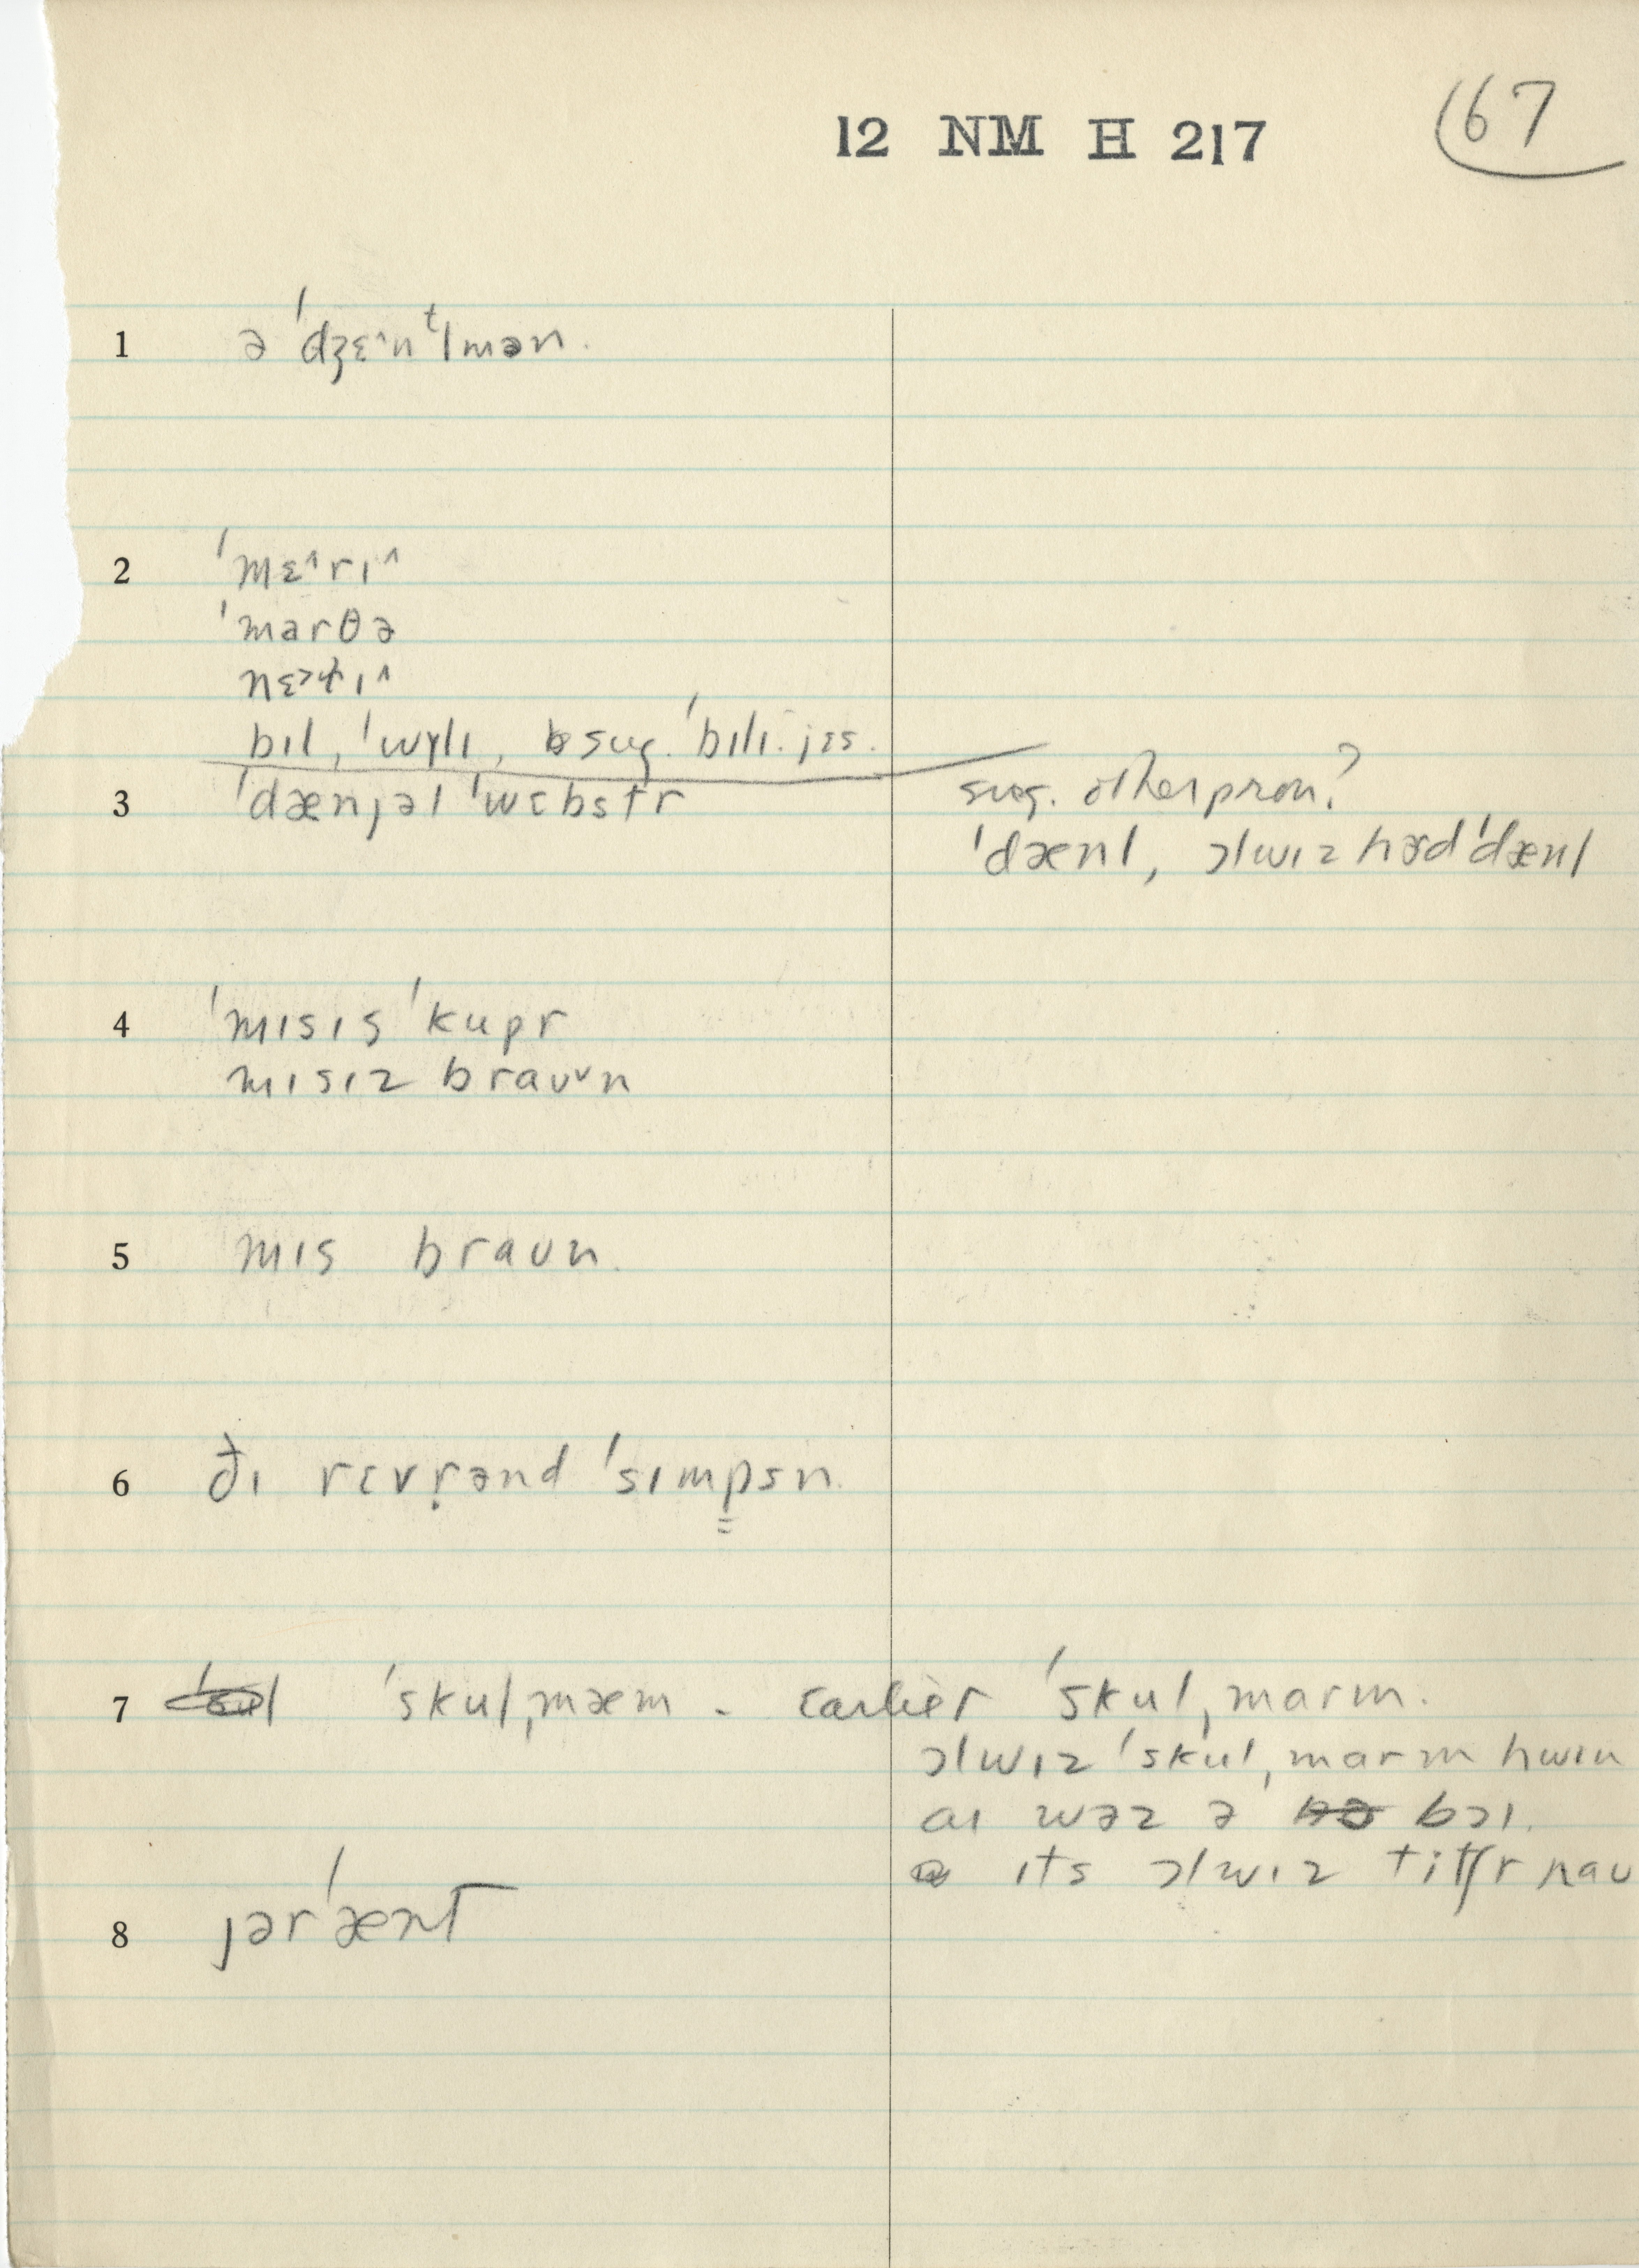 12 NM H 217
67
1 ə ˈdʒɛ^nᵗlmən.
2 ˈmɛ^rɪ^
ˈmarθə
nɛ˃t̬ɪ^
bɪl, ˈwɤlɪ, sug. ˈbɪlɪ. jɛs.
3 ˈdænjəl ˈwɛbstr sug. other pron?
ˈdænl, ɔlwɪz hərd ˈdænl
4 ˈmɪsɪs ˈkupr
mɪsɪz braʊ˅n
5 mɪs braʊn.
6 ðɪ rɛvr̥ənd ˈsɪmpsn.
7 ˈskulˌmæm - earlier ˈskulˌmarm.
ɔlwɪz ˈskulˌmarm hwɛn
aɪ wəz ə bɔɪ.
ɪts ɔlwɪz titʃr naʊ
8 jərˈænt